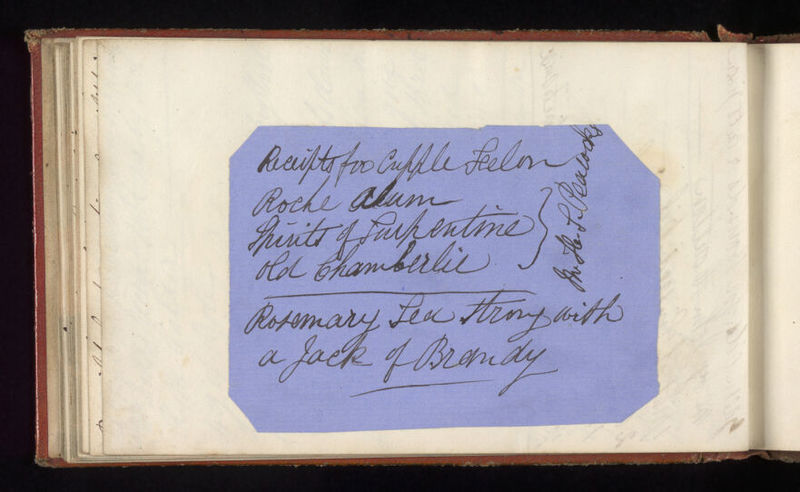 Receipts for Cupple Feelon
Roche Alum
Spirits of Turpentine
Old Chamberlie
Rosemary Tea strong with
a Jack of Brandy
S. Peacock